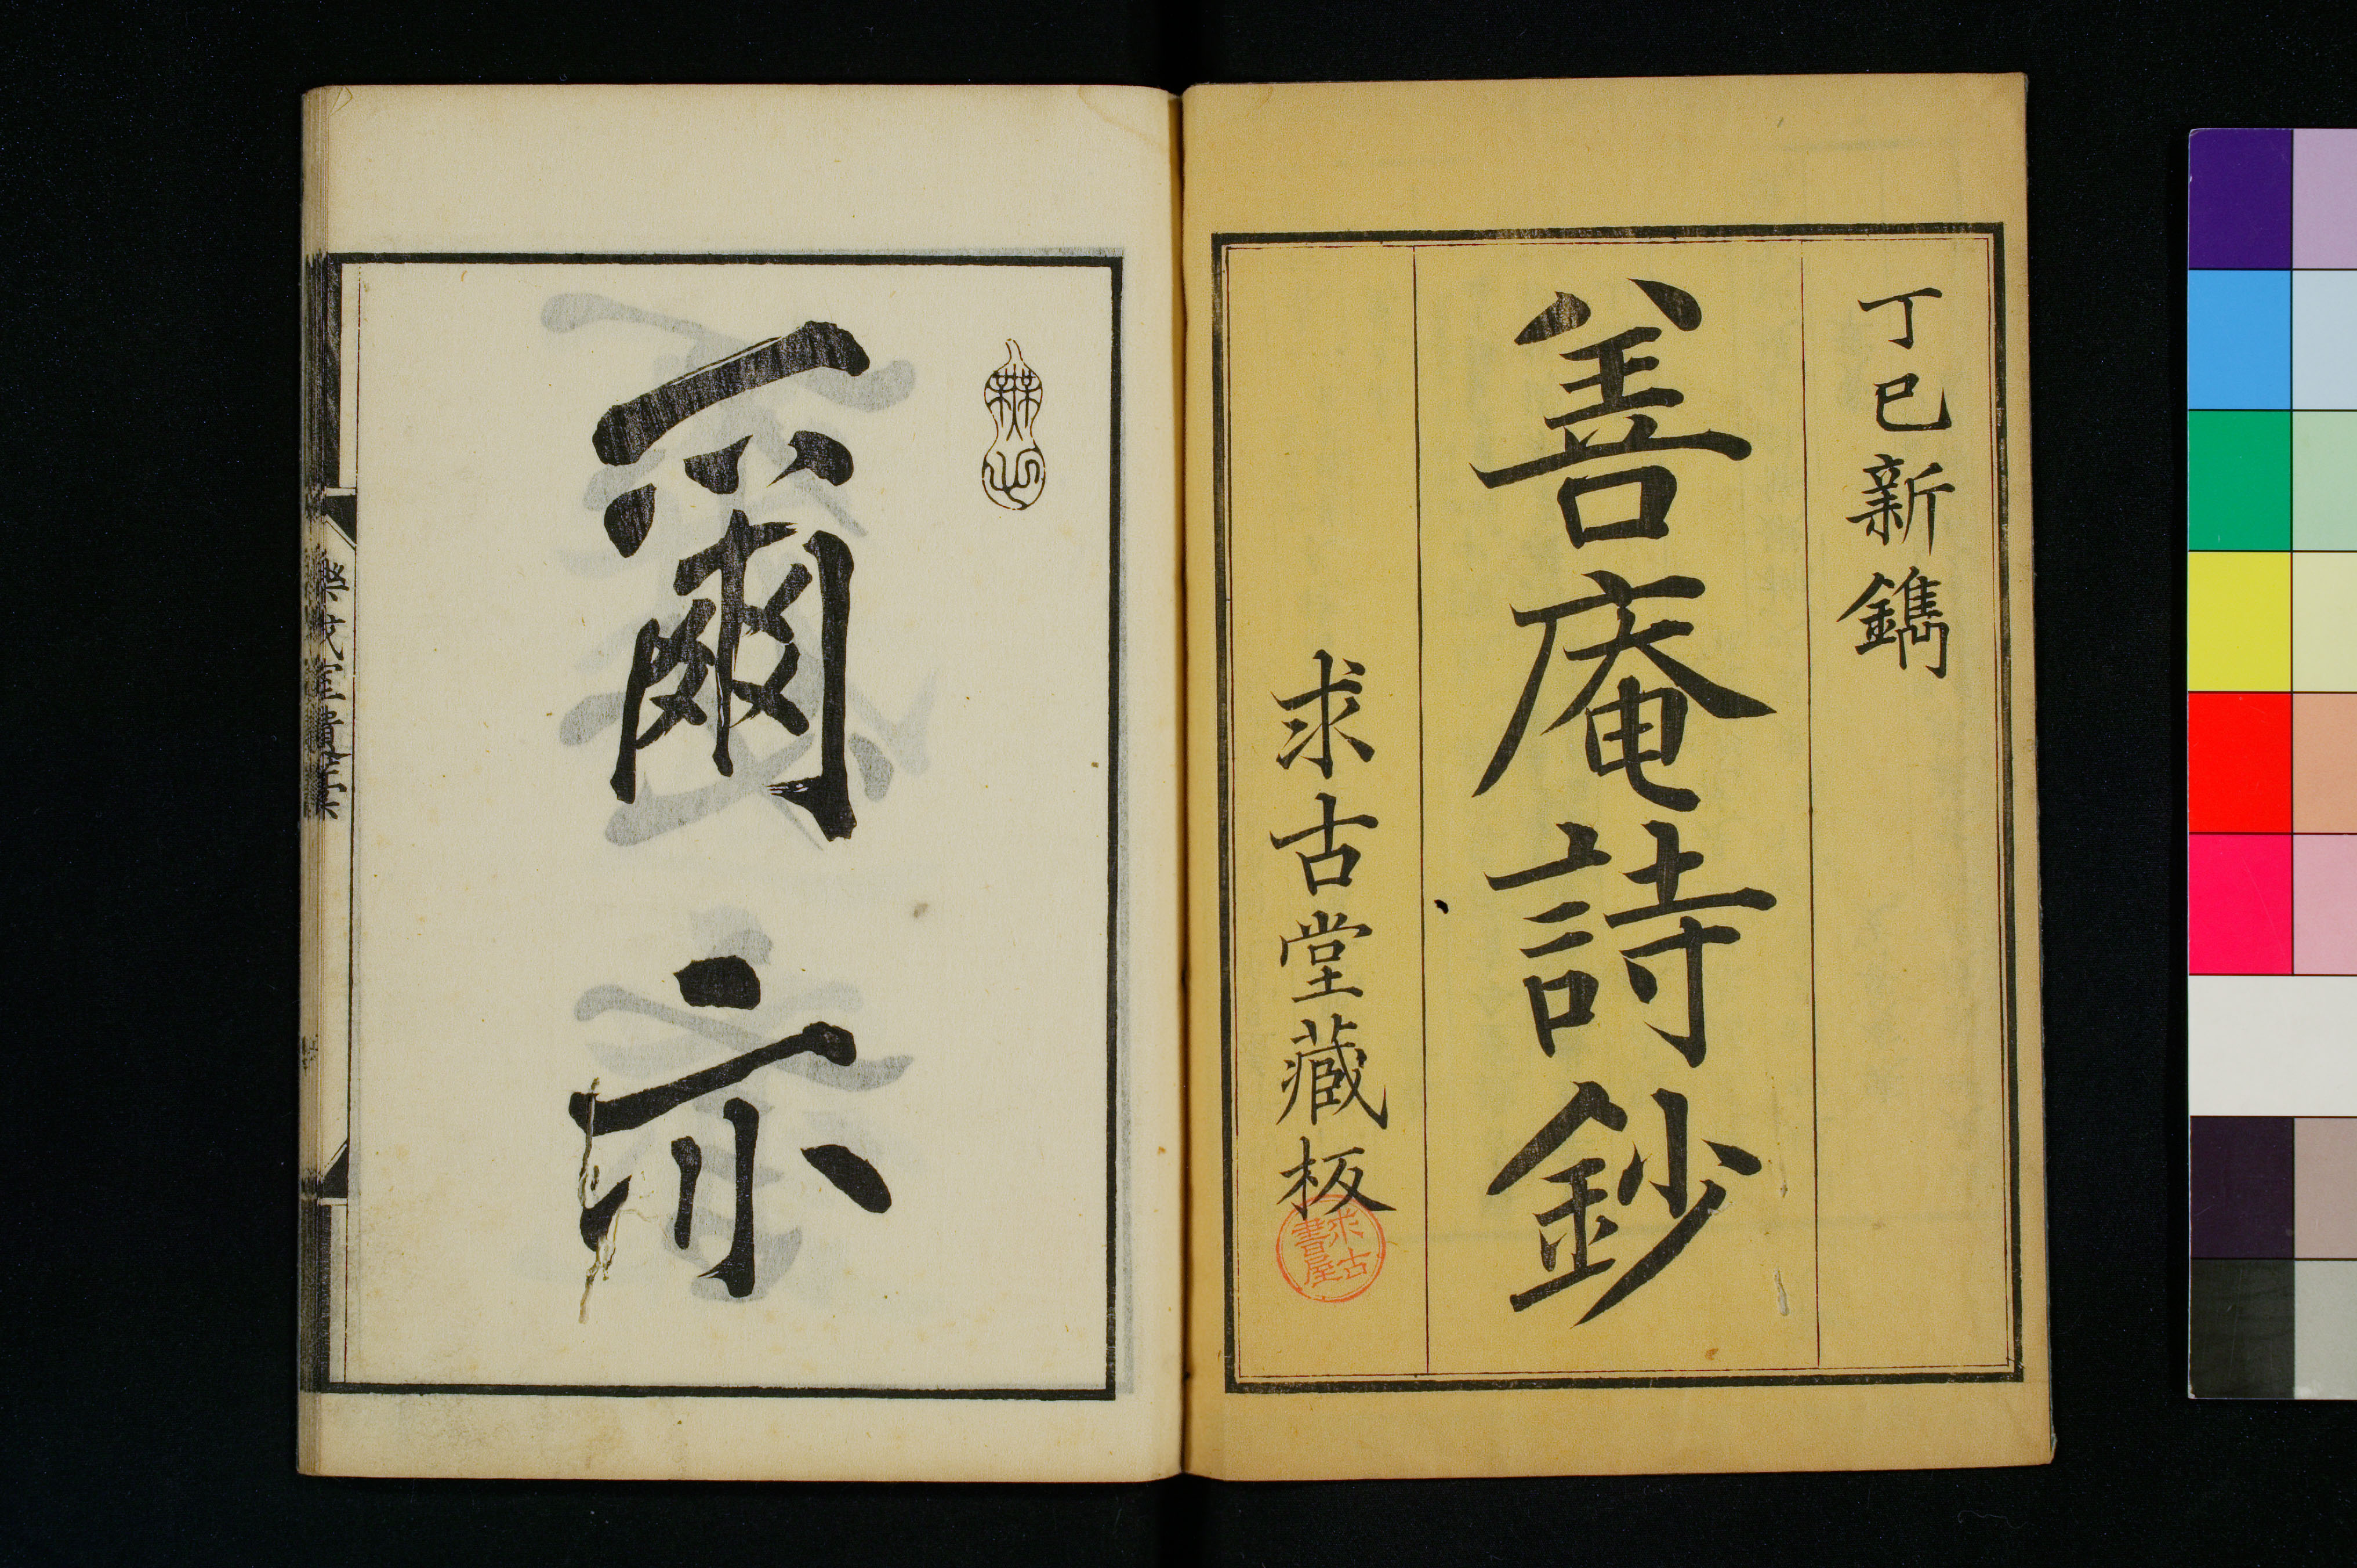 丁巳新鐫
善庵詩鈔
求古堂藏板
求古
書屋
爾亦